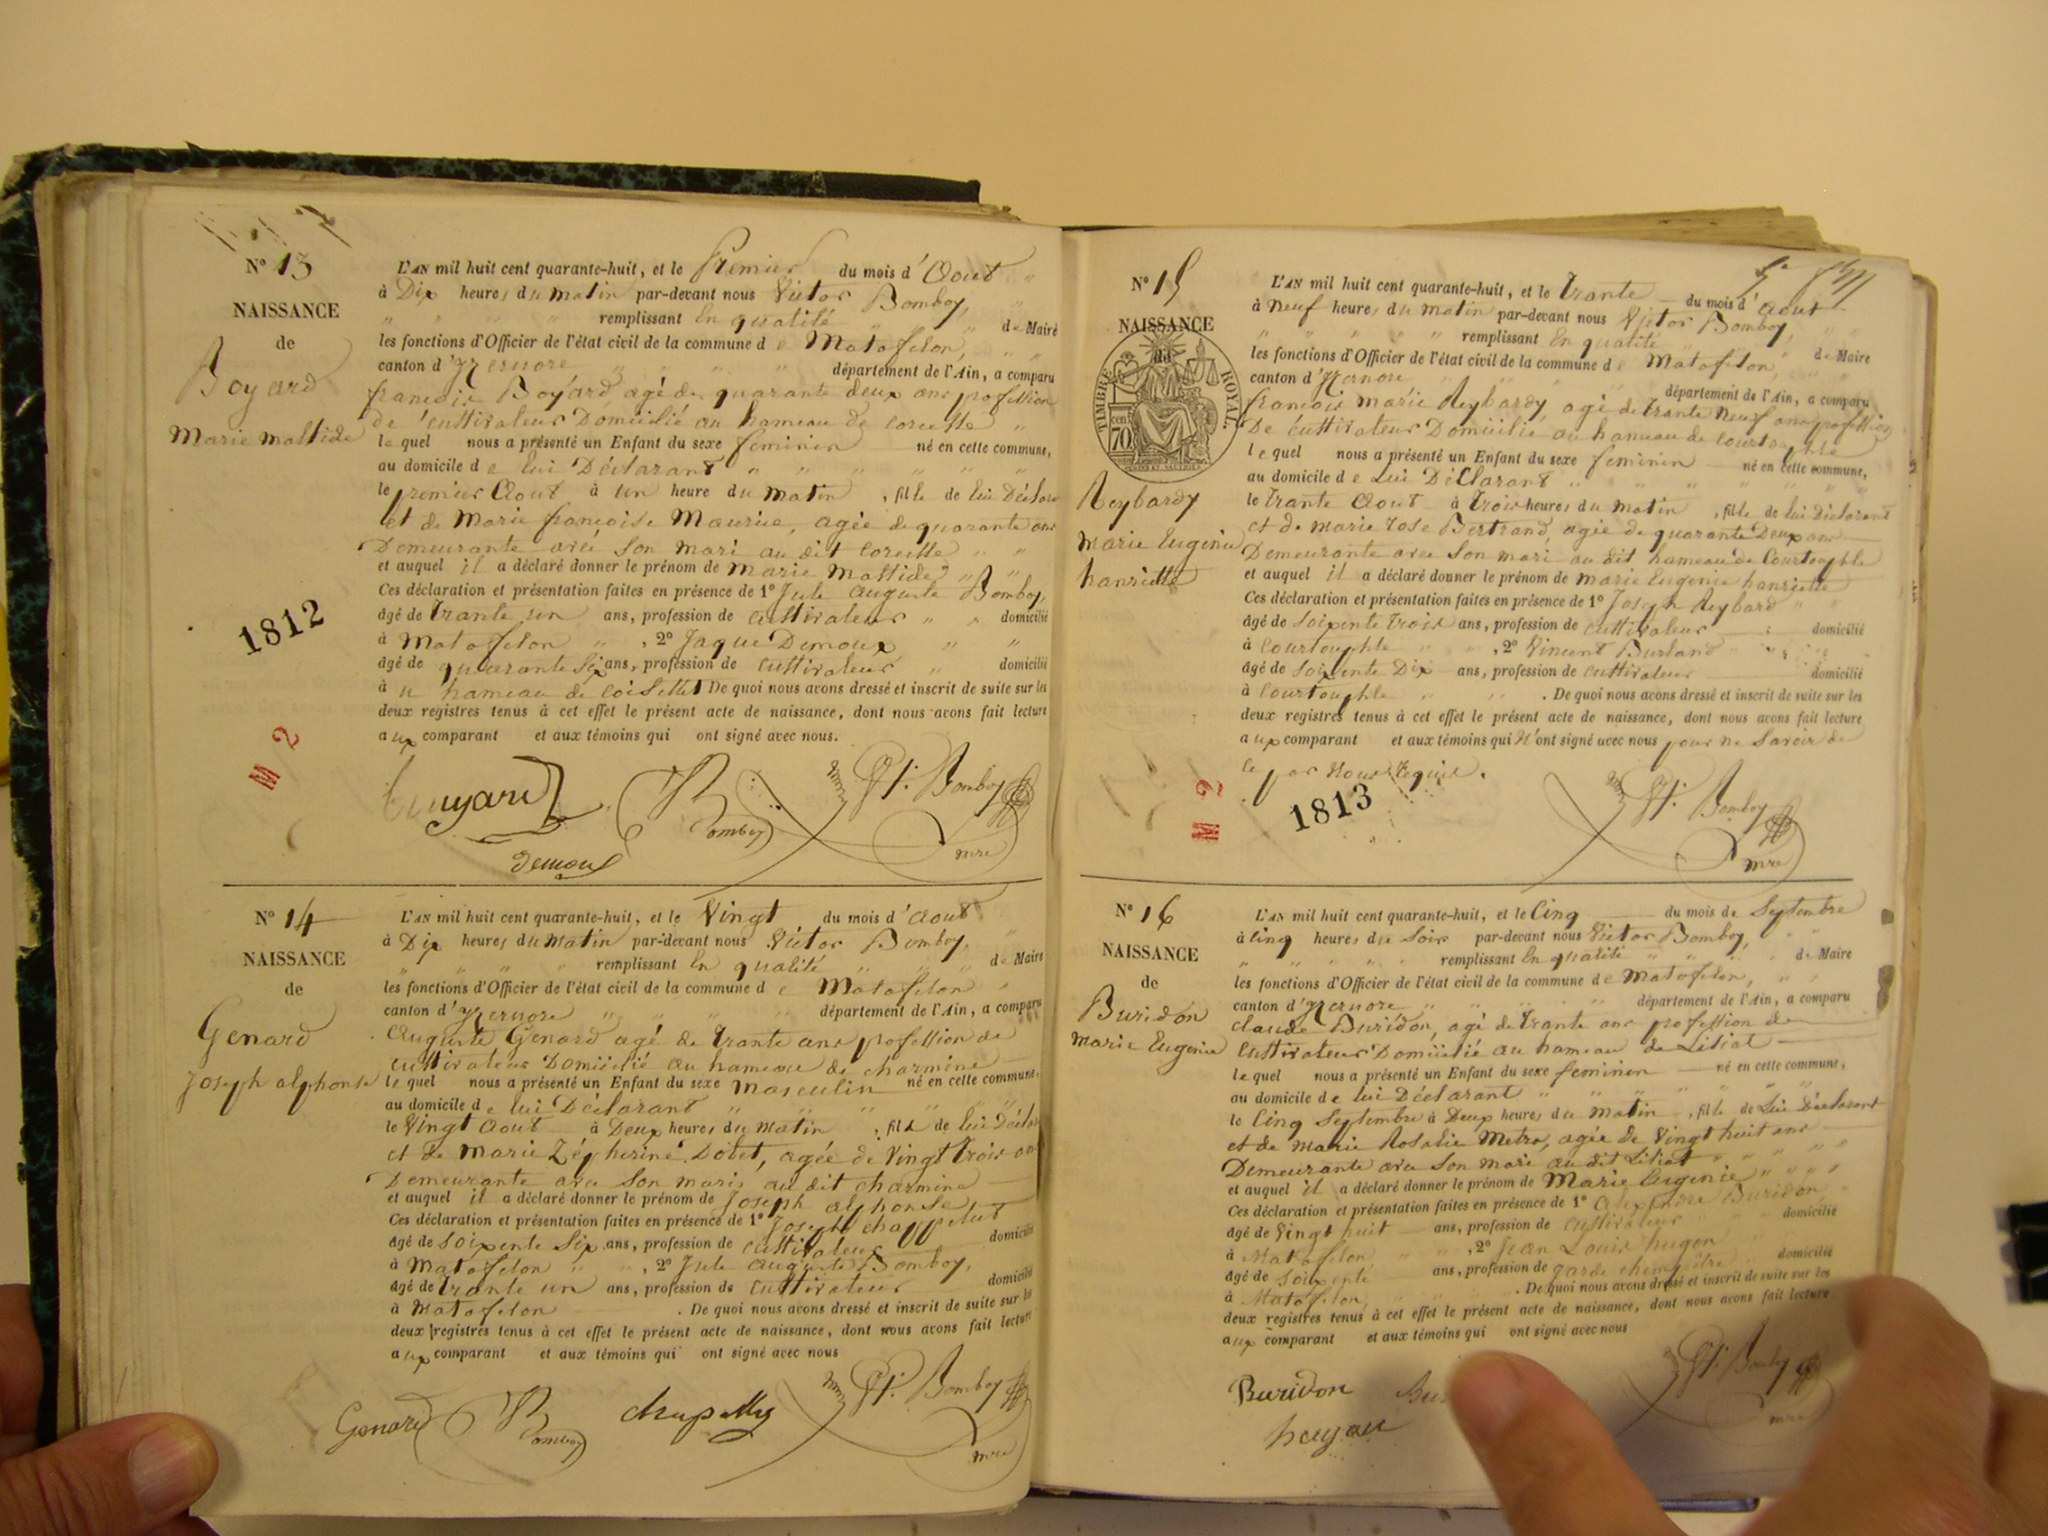 N° 13
NAISSANCE
de
Boyard
Marie maltide
L'AN mil huit cent quarante-huit, et le Premier du mois d'Aout
à Dix heures du matin par-devant nous Victor Bomboy,
remplissant En qualité de Maire
les fonctions d'Officier de l'état civil de la commune de Matafelon,
canton d'Izernore département de l'Ain, a comparu
françois Boyard agé de quarante deux ans profession
De cultivateur Domicilié au hameau de corcelle
le quel nous a présenté un Enfant du sexe feminin né en cette commune,
au domicile de lui Déclarant
le premier Aout à un heure du matin, fille de lui Déclara
et de Marie françoise Maurice, agée de quarante ans
Demeurante avec son mari au dit corcelle
et auquel il a déclaré donner le prénom de marie maltide
Ces déclaration et présentation faites en présence de 1° Jule auguste Bomboy,
âgé de trante un ans, profession de cultivateur domicilié
à Matafelon, 2° Jaque Demoux
âgé de quarante six ans, profession de cultivateur domicilié
à u hameau de coisellet De quoi nous avons dressé et inscrit de suite sur les
deux registres tenus à cet effet le présent acte de naissance, dont nous avons fait lecture
aux comparant et aux témoins qui ont signé avec nous.
1812
M 2
Bomboy
Vr. Bomboy
demoux
mre
N° 14
NAISSANCE
de
Genard
Joseph alphonse
L'AN mil huit cent quarante-huit, et le Vingt du mois d'aout
à Dix heures du matin par-devant nous Victor Bomboy,
remplissant En qualité de Maire
les fonctions d'Officier de l'état civil de la commune de Matafelon
canton d'Izernore département de l'Ain, a comparu
Auguste Genard agé de trante ans profession de
cultivateur Domicilié au hameau de charmine
le quel nous a présenté un Enfant du sexe masculin né en cette commune,
au domicile de lui Déclarant
le Vingt Aout à Deux heures du matin, fils de lui Déclar
et de Marie Zépherine Dotet, agée de Vingt trois an
Demeurante avec son mari, au dit charmine
et auquel il a déclaré donner le prénom de Joseph alphonse
Ces déclaration et présentation faites en présence de 1° Joseph chappellut
âgé de soixente six ans, profession de cultivateur domicilié
à Matafelon, 2° Jule auguste Bomboy,
âgé de trante un ans, profession de cultivateur domicilié
à Matafelon. De quoi nous avons dressé et inscrit de suite sur les
deux registres tenus à cet effet le présent acte de naissance, dont nous avons fait lecture
aux comparant et aux témoins qui ont signé avec nous
Genard Bomboy Vr. Bomboy
mre
N° 15
NAISSANCE
TIMBRE ROYAL
70
Reybardy
marie Eugenie
hanriette
L'AN mil huit cent quarante-huit, et le trante du mois d'aout
à Neuf heures du matin par-devant nous Victor Bomboy,
remplissant En qualité de Maire
les fonctions d'Officier de l'état civil de la commune de Matafelon,
canton d'Izernore département de l'Ain, a comparu
françois marie Reybardy, agé de trante Neuf ans profession
De cultivateur Domicilié au hameau de courtouphle
le quel nous a présenté un Enfant du sexe feminin né en cette commune,
au domicile de Lui DéClarant
le trante Aout à trois heures du matin, fille de lui Déclarant
et de marie rose Bertrand, agée de quarante Deux ans
Demeurante avec son mari au dit hameau de Courtouphle
et auquel il a déclaré donner le prénom de marie Eugenie hanriette
Ces déclaration et présentation faites en présence de 1° Joseph Reybard
âgé de soixente trois ans, profession de cultivateur domicilié
à Courtouphle, 2° Vincent Burland
âgé de soixente Dix ans, profession de cultivateur domicilié
à Courtouphle. De quoi nous avons dressé et inscrit de suite sur les
deux registres tenus à cet effet le présent acte de naissance, dont nous avons fait lecture
aux comparant et aux témoins qui N'ont signé avec nous pour ne savoir de
le par Nous Requis.
1813
M 2
Vr. Bomboy
mre
N° 16
NAISSANCE
de
Buridon
Marie Eugenie
L'AN mil huit cent quarante-huit, et le Cinq du mois de Septembre
à Cinq heures du Soir par-devant nous Victor Bomboy,
remplissant En qualité de Maire
les fonctions d'Officier de l'état civil de la commune de Matafelon,
canton d'Izernore département de l'Ain, a comparu
claude Buridon, agé de trante ans profession de
Cultivateur Domicilié au hameau de Liliat
le quel nous a présenté un Enfant du sexe feminin né en cette commune,
au domicile de lui Déclarant
le Cinq Septembre à Deux heures du matin, fille de Lui Déclarant
et de marie Rosalie Metra, agée de Vingt huit ans
Demeurante avec son mari au dit Liliat
et auquel il a déclaré donner le prénom de Marie Eugenie
Ces déclaration et présentation faites en présence de 1° alexandre Buridon,
âgé de Vingt huit ans, profession de cultivateur domicilié
à Matafelon, 2° Jean Louis hugon
âgé de soixente ans, profession de garde chempêtre domicilié
à Matafelon. De quoi nous avons dressé et inscrit de suite sur les
deux registres tenus à cet effet le présent acte de naissance, dont nous avons fait lecture
aux comparant et aux témoins qui ont signé avec nous
Buridon Vr. Bomboy
mre